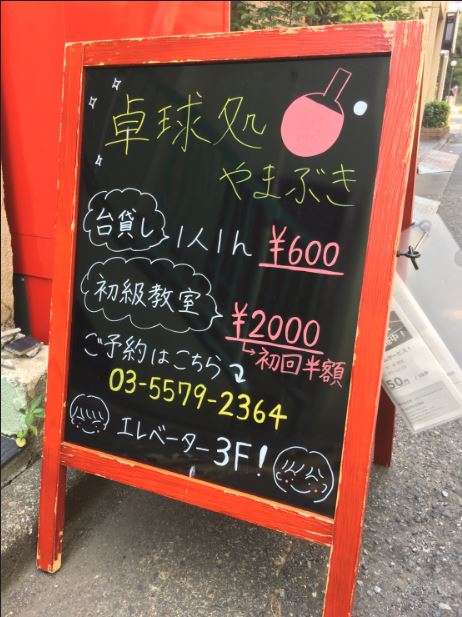 卓球処
やまぶき
台貸し 1人1h ¥600
初級教室 ¥2000
→初回半額
ご予約はこちら
03-5579-2364
エレベーター3F!